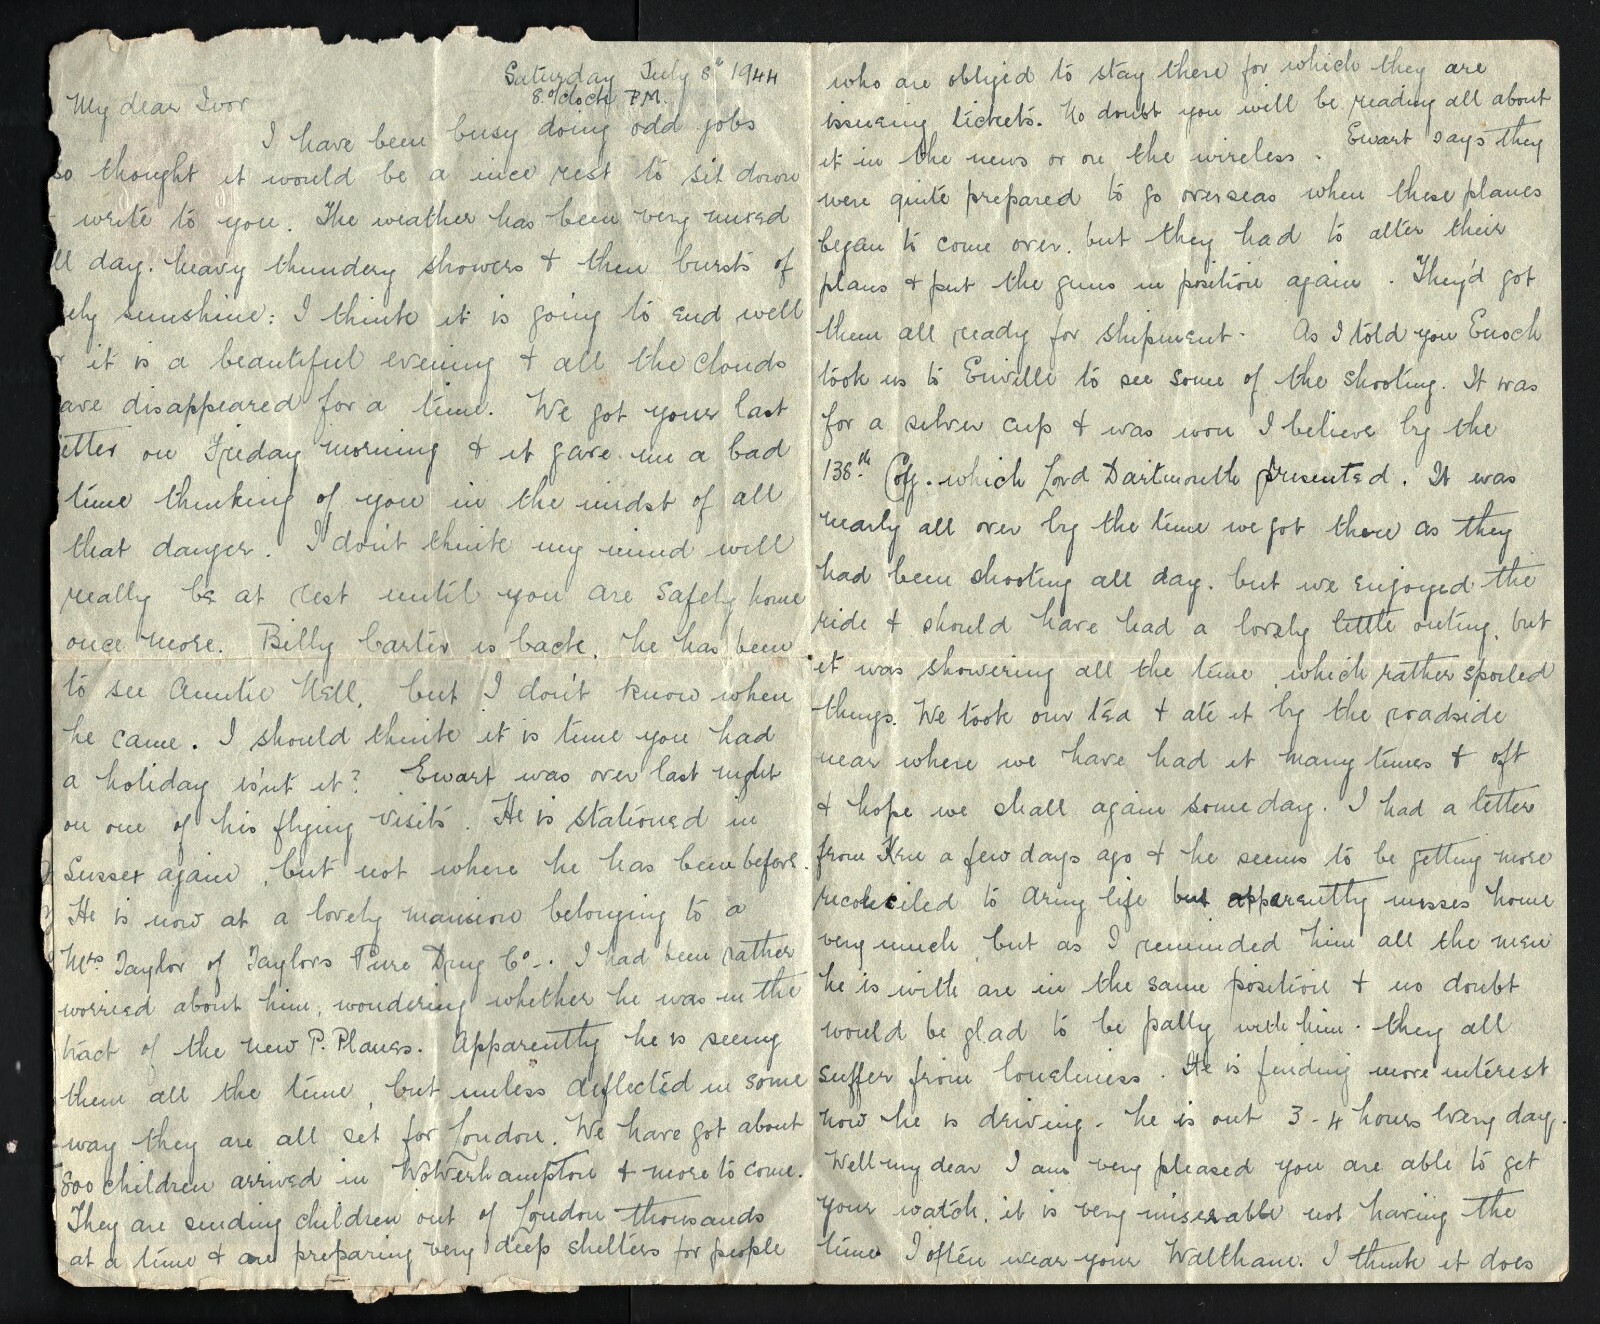 Saturday July 8th 1944
8. o/clock P.M.
My dear Ivor
I have been busy doing odd jobs
so thought it would be a nice rest to sit down
write to you. The weather has been very mixed
ll day. heavy thundery showers & then bursts of
ely sunshine: I think it is going to end well
r it is a beautiful evening & all the clouds
ave disappeared for a time. We got your last
etter on Friday morning & it gave me a bad
time thinking of you in the midst of all
that danger. I don't think my mind will
really be at rest until you are safely home
once more. Billy Carter is back. he has been
to see Auntie Nell, but I don't know when
he came. I should think it is time you had
a holiday isn't it? Ewart was over last night
on one of his flying visits. He is stationed in
Sussex again, but not where he has been before.
He is now at a lovely mansion belonging to a
Mrs Taylor of Taylors Pure Drug Co-. I had been rather
worried about him, wondering whether he was in the
tract of the new P. Planes. Apparently he is seeing
them all the time, but unless deflected in some
way they are all set for London. We have got about
800 children arrived in Wolverhampton & more to come.
They are sending children out of London thousands
at a time & are preparing very deep shelters for people
who are obliged to stay there for which they are
issueing tickets. No doubt you will be reading all about
it in the news or on the wireless. Ewart says they
were quite prepared to go overseas when these planes
began to come over. but they had to alter their
plans & put the guns in position again. They'd got
them all ready for shipment. As I told you Enoch
took us to Enville to see some of the shooting. It was
for a silver cup & was won I believe by the
138th Coy. which Lord Dartmouth presented. It was
nearly all over by the time we got there as they
had been shooting all day. but we enjoyed the
ride & should have had a lovely little outing, but
it was showering all the time, which rather spoiled
things. We took our tea & ate it by the roadside
near where we have had it many times & oft
& hope we shall again some day. I had a letter
from Ken a few days ago & he seems to be getting more
reconciled to Army life but apparently misses home
very much, but as I reminded him all the men
he is with are in the same position & no doubt
would be glad to be pally with him. they all
suffer from loneliness. He is finding more interest
now he is driving. he is out 3-4 hours every day.
Well my dear I am very pleased you are able to get
your watch, it is very miserable not having the
time I often wear your Waltham. I think it does